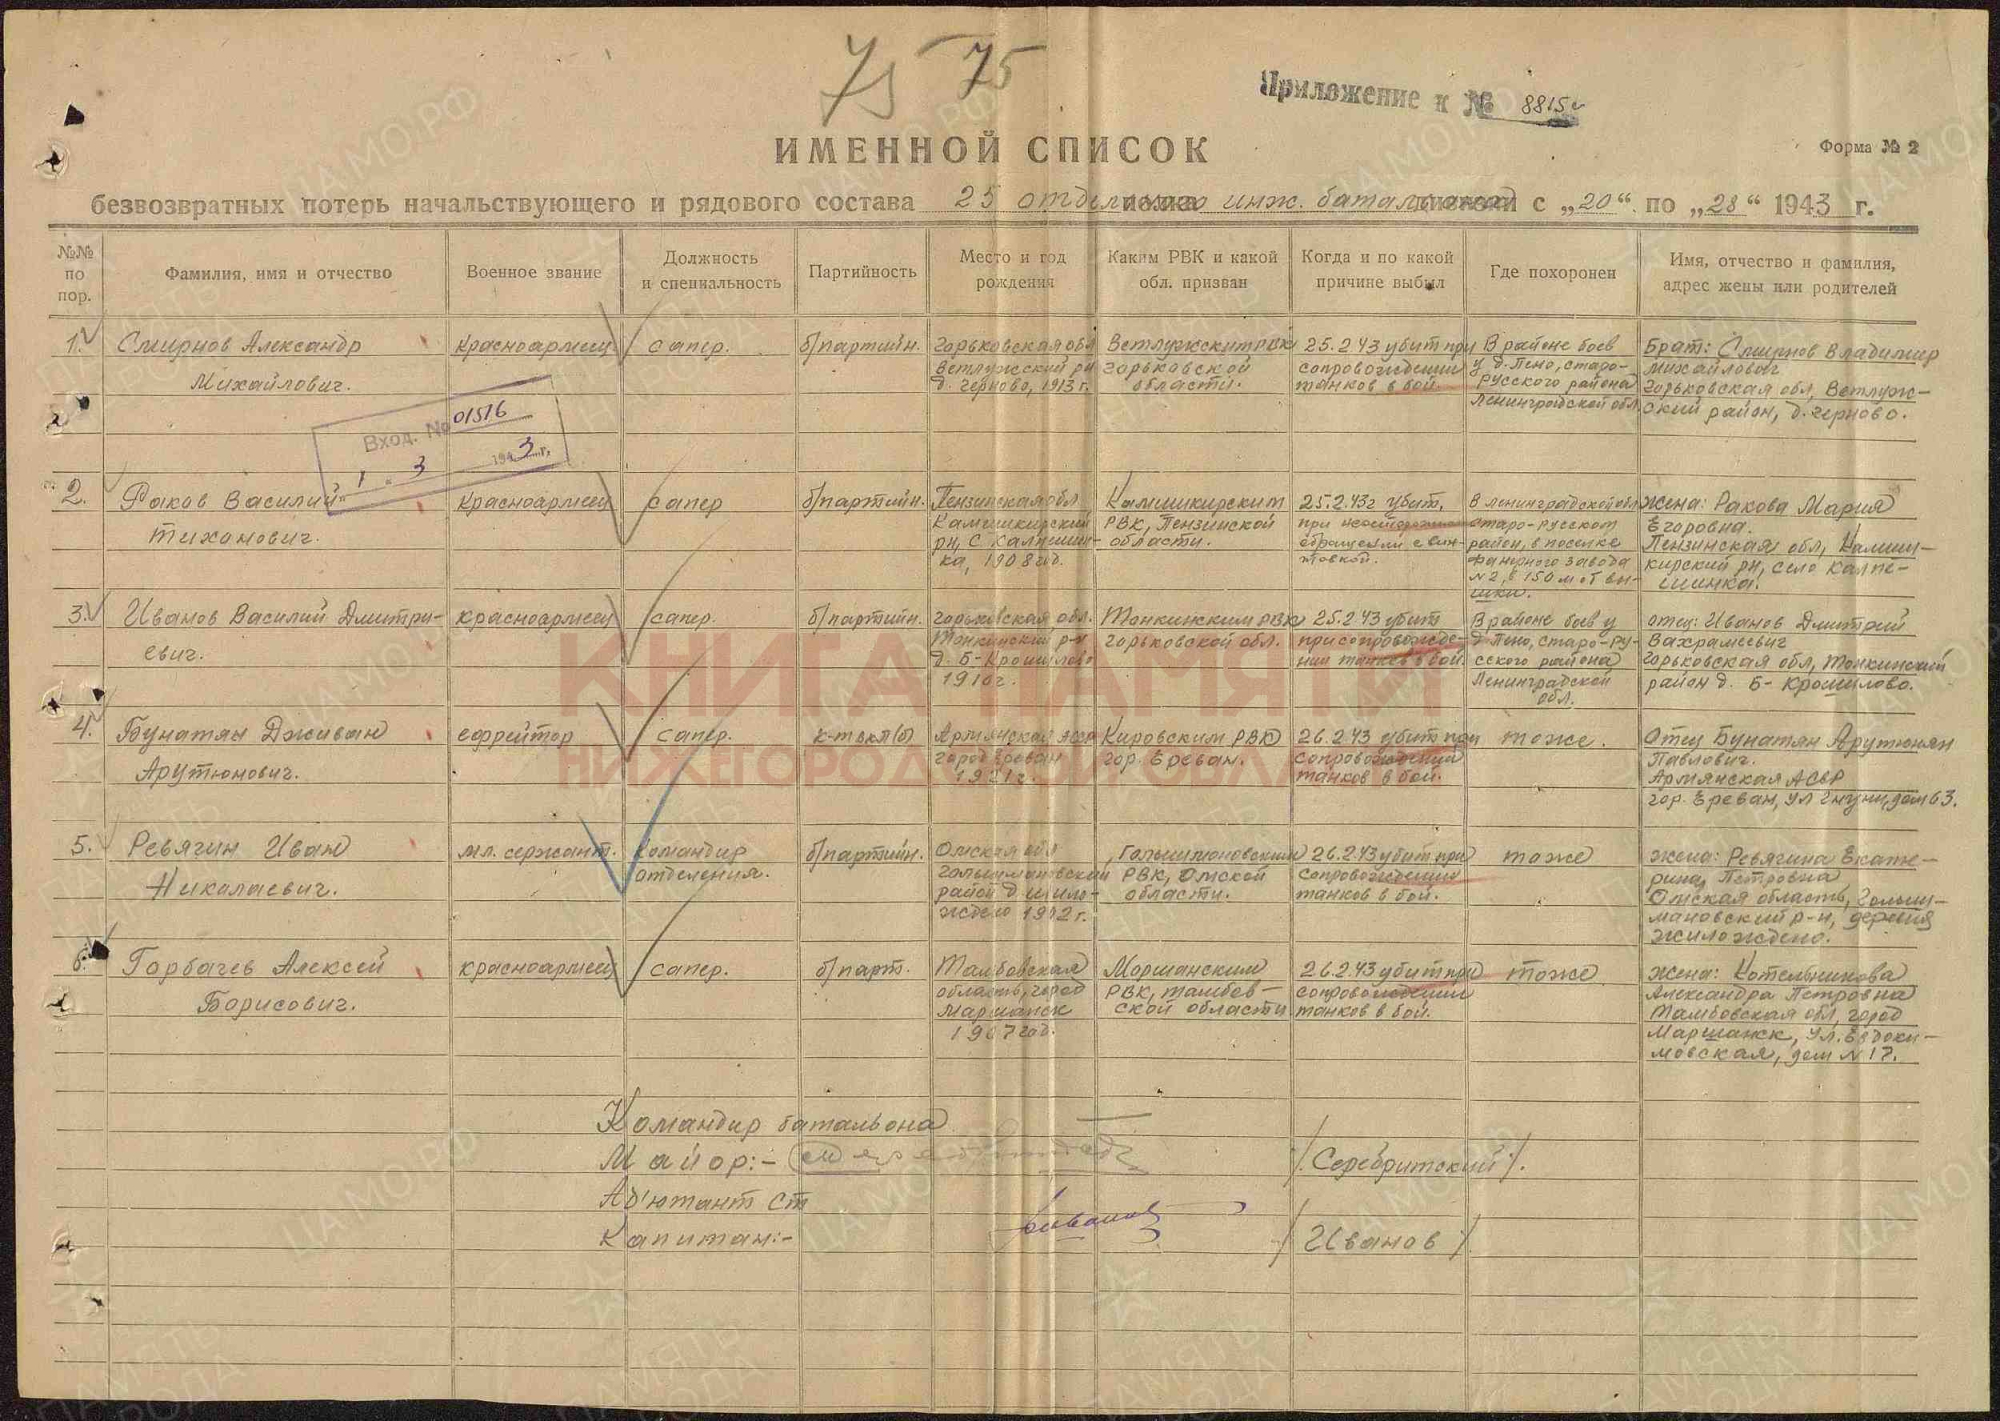 75 75
Приложение к № 8815с
ИМЕННОЙ СПИСОК
Форма № 2
безвозвратных потерь начальствующего и рядового состава 25 отдельного инж. батальона с „20“ по „28“ 1943 г.
№№ по пор.
Фамилия, имя и отчество
Военное звание
Должность и специальность
Партийность
Место и год рождения
Каким РВК и какой обл. призван
Когда и по какой причине выбыл
Где похоронен
Имя, отчество и фамилия, адрес жены или родителей
1.
Смирнов Александр
Михайлович.
красноармеец
сапер.
б/партийн.
Горьковская обл
Ветлужский рн
д. Черново, 1913 г.
Ветлужским РВК
Горьковской
области.
25.2.43 убит при
сопровождении
танков в бой.
В районе боев
у д. Пено, старо-
Русского района
Ленинградской обл.
Брат: Смирнов Владимир
Михайлович
Горьковская обл, Ветлуж-
ский район, д. Черново.
Вход. № 01516
1. 3 1943 г.
2.
Раков Василий
Тиханович.
красноармеец
сапер
б/партийн.
Пензинская обл
Камышкирский
рн, с
1908 год.
Камишкирским
РВК, Пензинской
области.
25.2.43г убит,
при
обращении с вин-
товкой.
В ленинградской обл
старо-русском
район, в поселке
фанерного завода
N 2, в 150 м от вы-
шки.
жена: Ракова Мария
Егоровна.
Пензинская обл, Камыш-
кирский рн, село
3.
Иванов Василий Дмитри-
евич.
красноармеец
сапер.
б/партийн.
Горьковская обл.
Тонкинский р-н
д. Б-Крошилово
1910г.
Тонкинским РВК
горьковской обл.
25.2.43 убит
при сопровожде-
нии танков в бой.
В районе боев у
д Пено, старо-Ру-
сского района
Ленинградской
обл.
отец: Иванов Дмитрий
Вахрамевич
Горьковская обл, Тонкинский
район д. Б- Крошилово.
4.
Бунатян Дживан
Арутюнович.
ефрейтор
сапер.
к-т вкп(б)
Армянская АССР
город Ереван
1921г.
Кировским РВК
гор. Ереван.
26.2.43 убит при
сопровождении
танков в бой.
тоже.
Отец Бунатян Арутюнян
Павлович.
Армянская АССР
гор. Ереван, ул дом 63.
5.
Ревягин Иван
Никалаевич.
мл. сержант.
командир
отделения.
б/партийн.
Омская обл
район д.
1912 г.
РВК, Омской
области.
26.2.43 убит при
сопровождении
танков в бой.
тоже
жена: Ревягина Екате-
рина Петровна
Омская область,
р-н, деревня
6.
Горбачев Алексей
Борисович.
красноармеец
сапер.
б/парт.
Тамбовская
область, город
Маршанск
1907 год.
Моршанским
РВК, тамбов-
ской области
26.2.43 убит при
сопровождении
танков в бой.
тоже
жена: Котельникова
Александра Петровна
Тамбовская обл, город
Маршанск, ул. Евдоки-
мовская, дом N 17.
Командир батальона
Майор:- /Серебритский/.
Ад'ютант ст
Капитан:- /Иванов/
КНИГА ПАМЯТИ
НИЖЕГОРОДСКОЙ ОБЛАСТИ